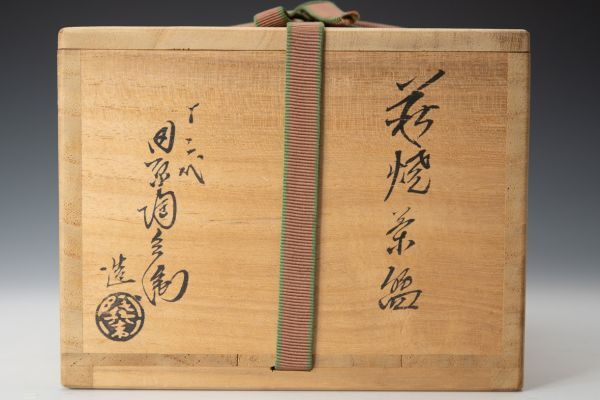 萩焼茶盌
十二代
田原陶兵衛
造